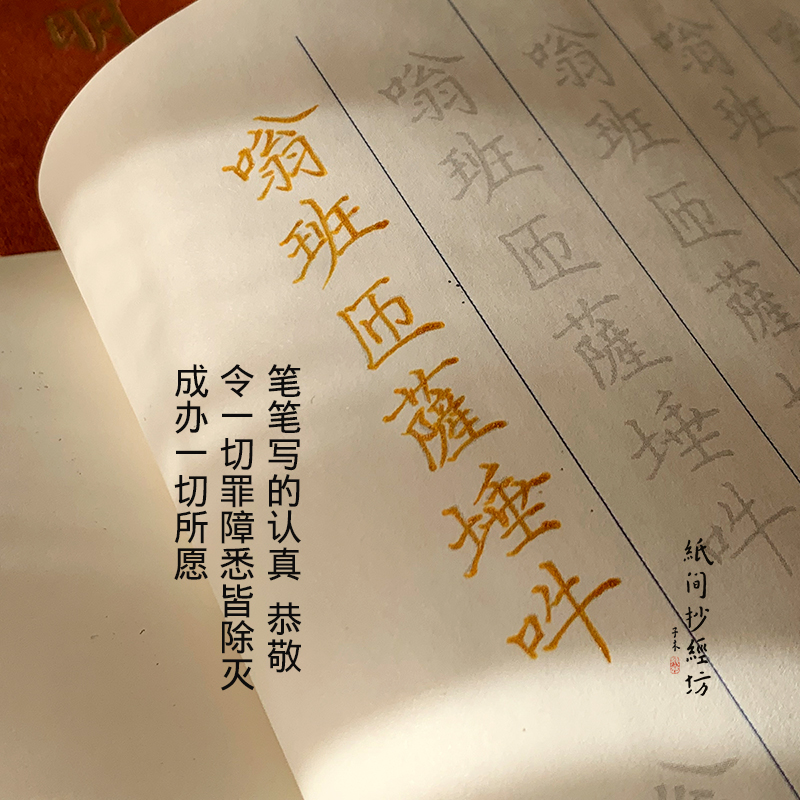 明
嗡班匝薩埵吽
嗡班匝薩埵吽
嗡班匝薩
嗡班
笔笔写的认真 恭敬
令一切罪障悉皆除灭
成办一切所愿
紙间抄經坊
子木